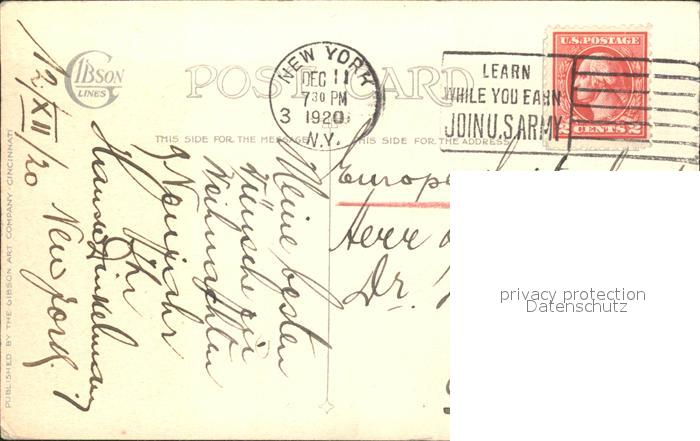 GIBSON
LINES
POST CARD
NEW YORK
DEC 11
7 30 PM
3 1920
N.Y.
LEARN
WHILE YOU EARN
JOIN U.S. ARMY
U.S. POSTAGE
2 CENTS 2
THIS SIDE FOR THE MESSAGE
THIS SIDE FOR THE ADDRESS
PUBLISHED BY THE GIBSON ART COMPANY, CINCINNATI
12/XII/20 New York.
Meine besten
Wünsche zu
Weihnachten
& Neujahr
Ihr
Europe
Herr
Dr.
privacy protection
Datenschutz